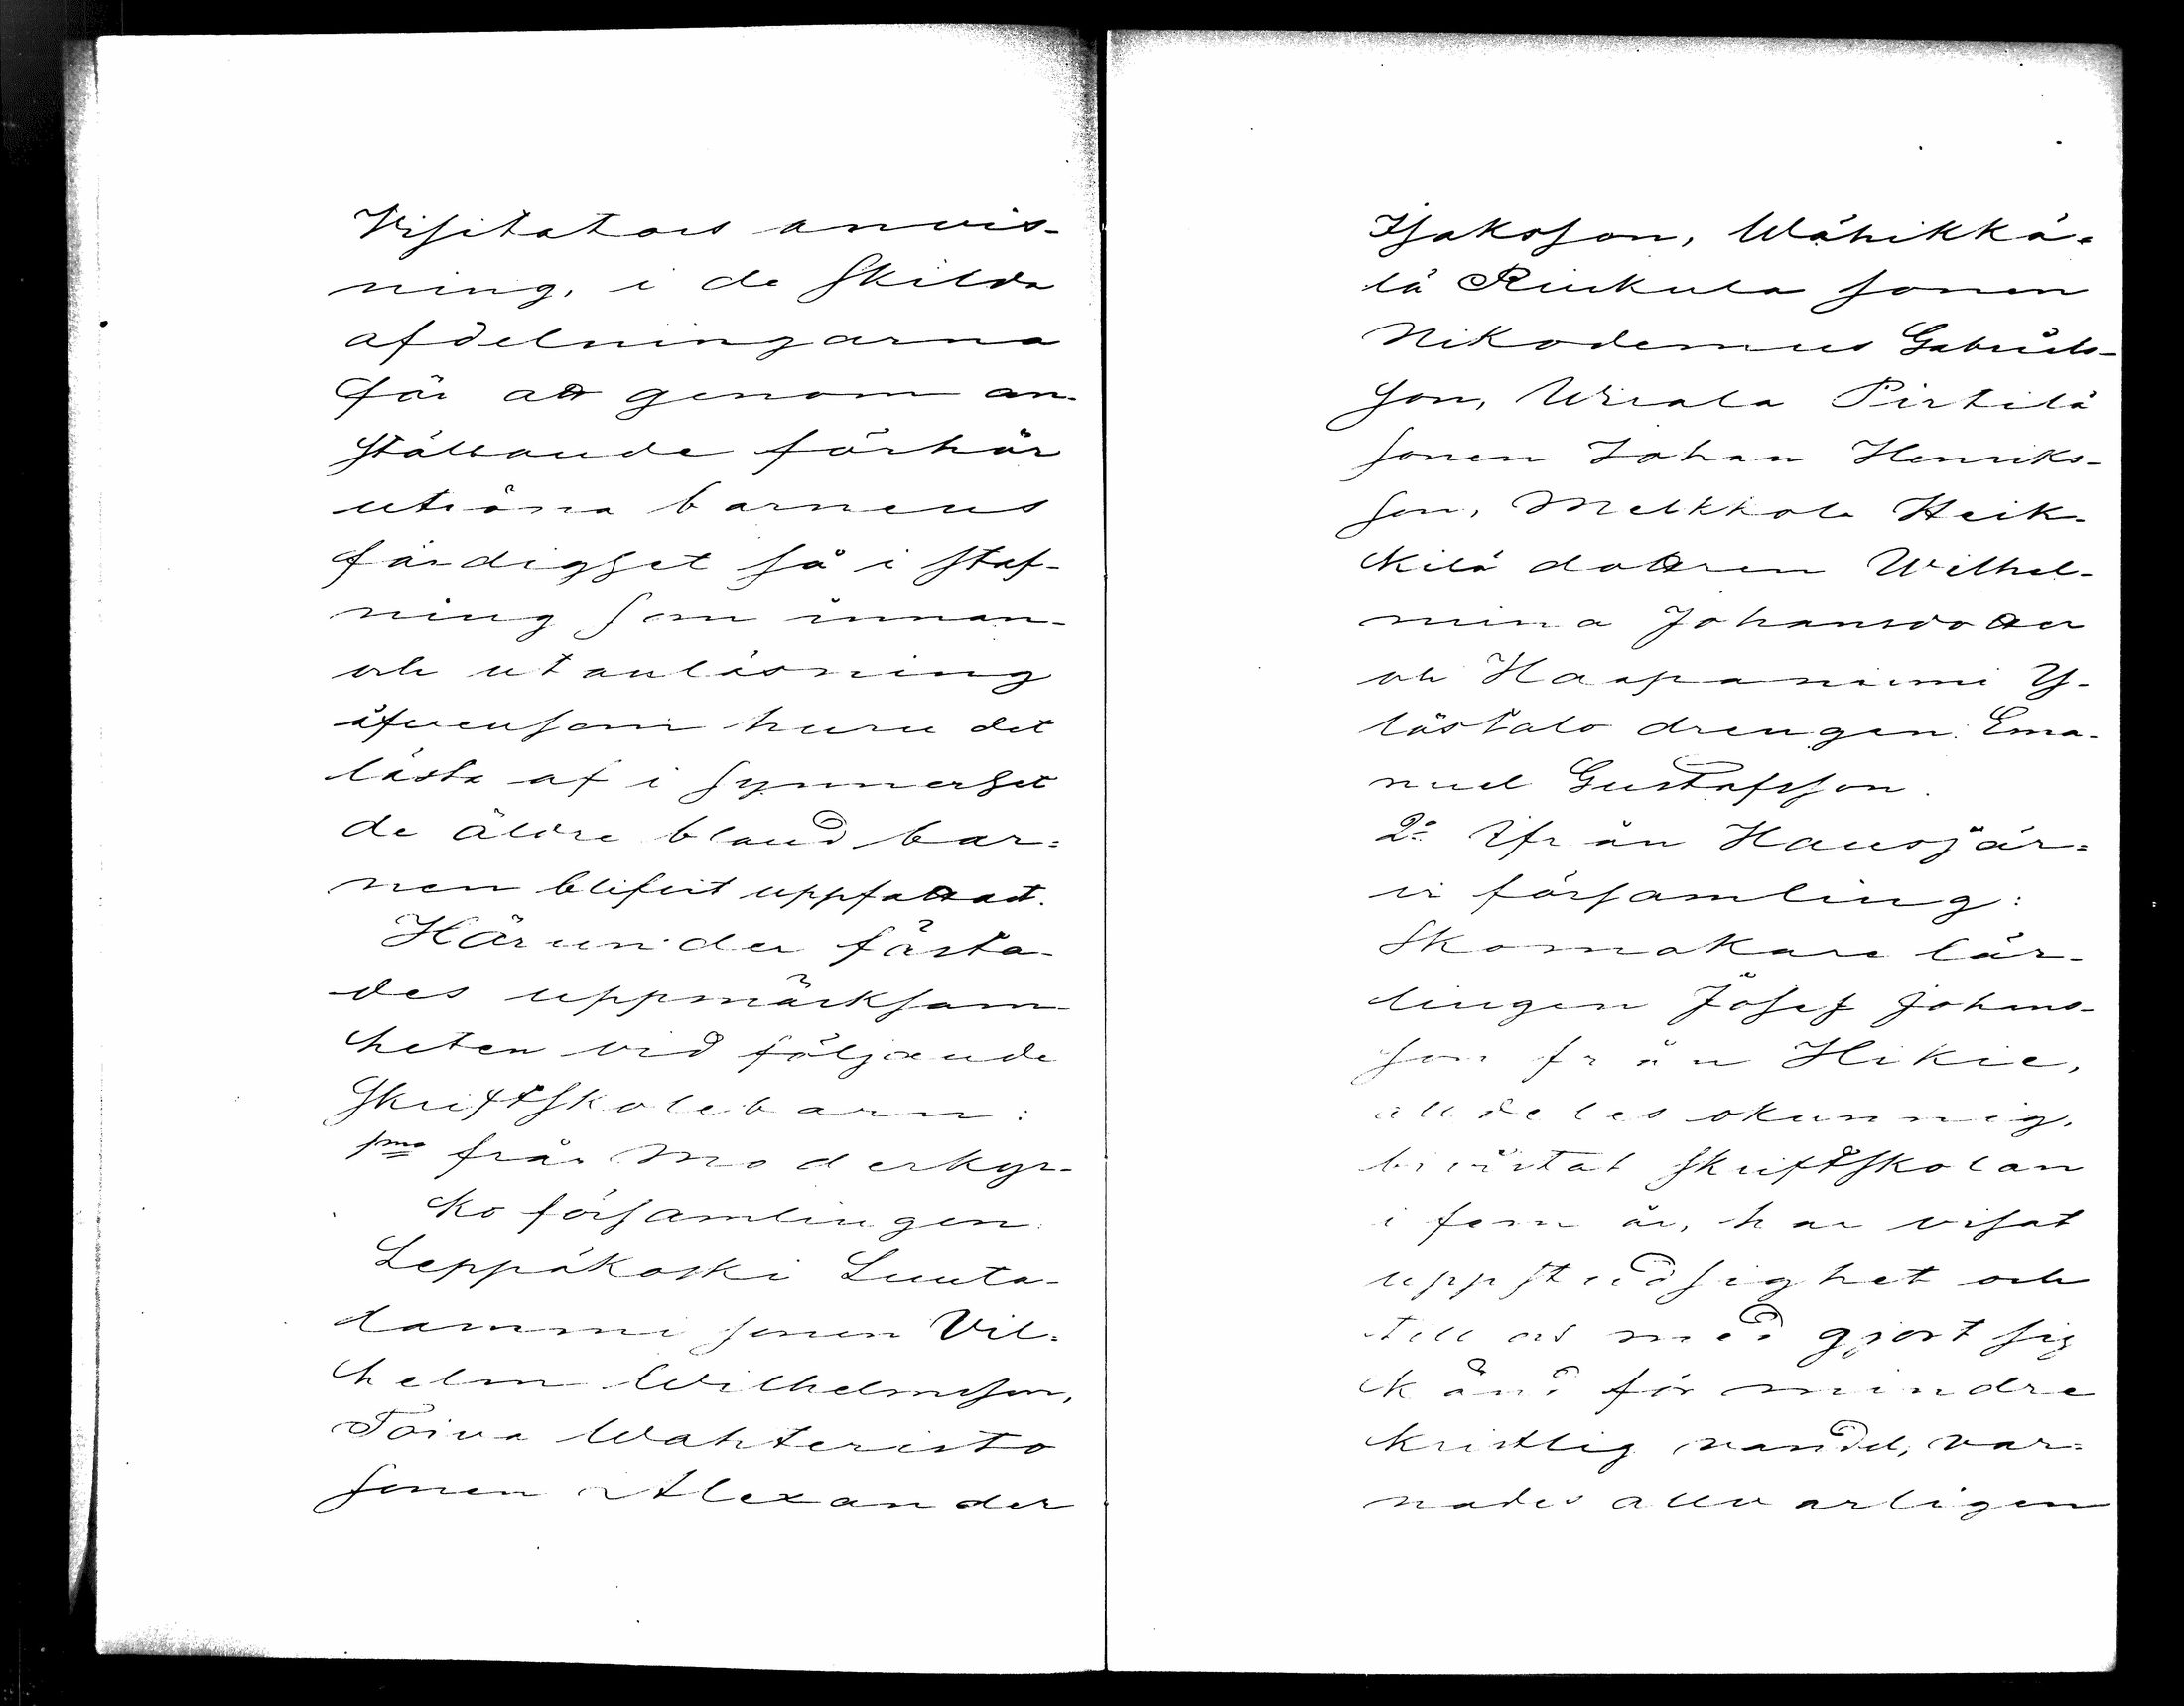 Visitators anvis-
ning, i de skilda
afdelningarna
för att genom an-
ställande förhör
utröna barnens
färdighet så i staf-
ning som innan-
och utanläsning
äfvensom huru det
lästa af i synnerhet
de äldre bland bar=
nen blifvit uppfattadt.
Härunder fästa-
des uppmärksam-
heten vid följande
Skriftskolebarn:
1mo från Moderkyr-
ko församlingen:
Leppäkoski Luuta-
lammi sonen Vil=
helm Wilhelmsson,
Toivo Wahteristo
sonen Alexander
Isaksson, Wähikkä=
lä Riukula sonen
Nikodemus Gabriels-
son, Wirala Pirtilä
sonen Johan Henriks-
son, Melkkola Heik-
kilä dottren Wilhel-
mina Johansdotter
och Haapaniemi Y-
löstalo drengen Ema-
nuel Gustafsson.
2o Ifrån Hausjär=
vi församling:
Skomakare lär-
lingen Josef Johans-
son från Hikiä,
alldeles okunnig,
bivistat skriftskolan
i fem år, har visat
uppstudsighet och
till och med gjort sig
känd för mindre
kristlig vandel, var=
nades allvarligen